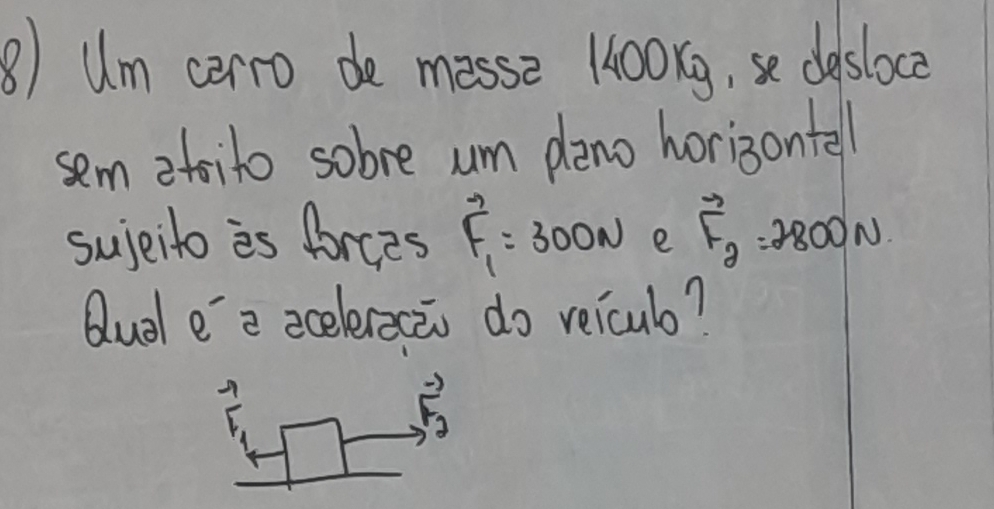 8) Um carro de massa 1400Kg, se desloca
sem atrito sobre um plano horizontal
sujeito às forças F⃗₁ = 300N e F⃗₂ = 2800N.
Qual é a aceleração do veículo?
F⃗₁ F⃗₂